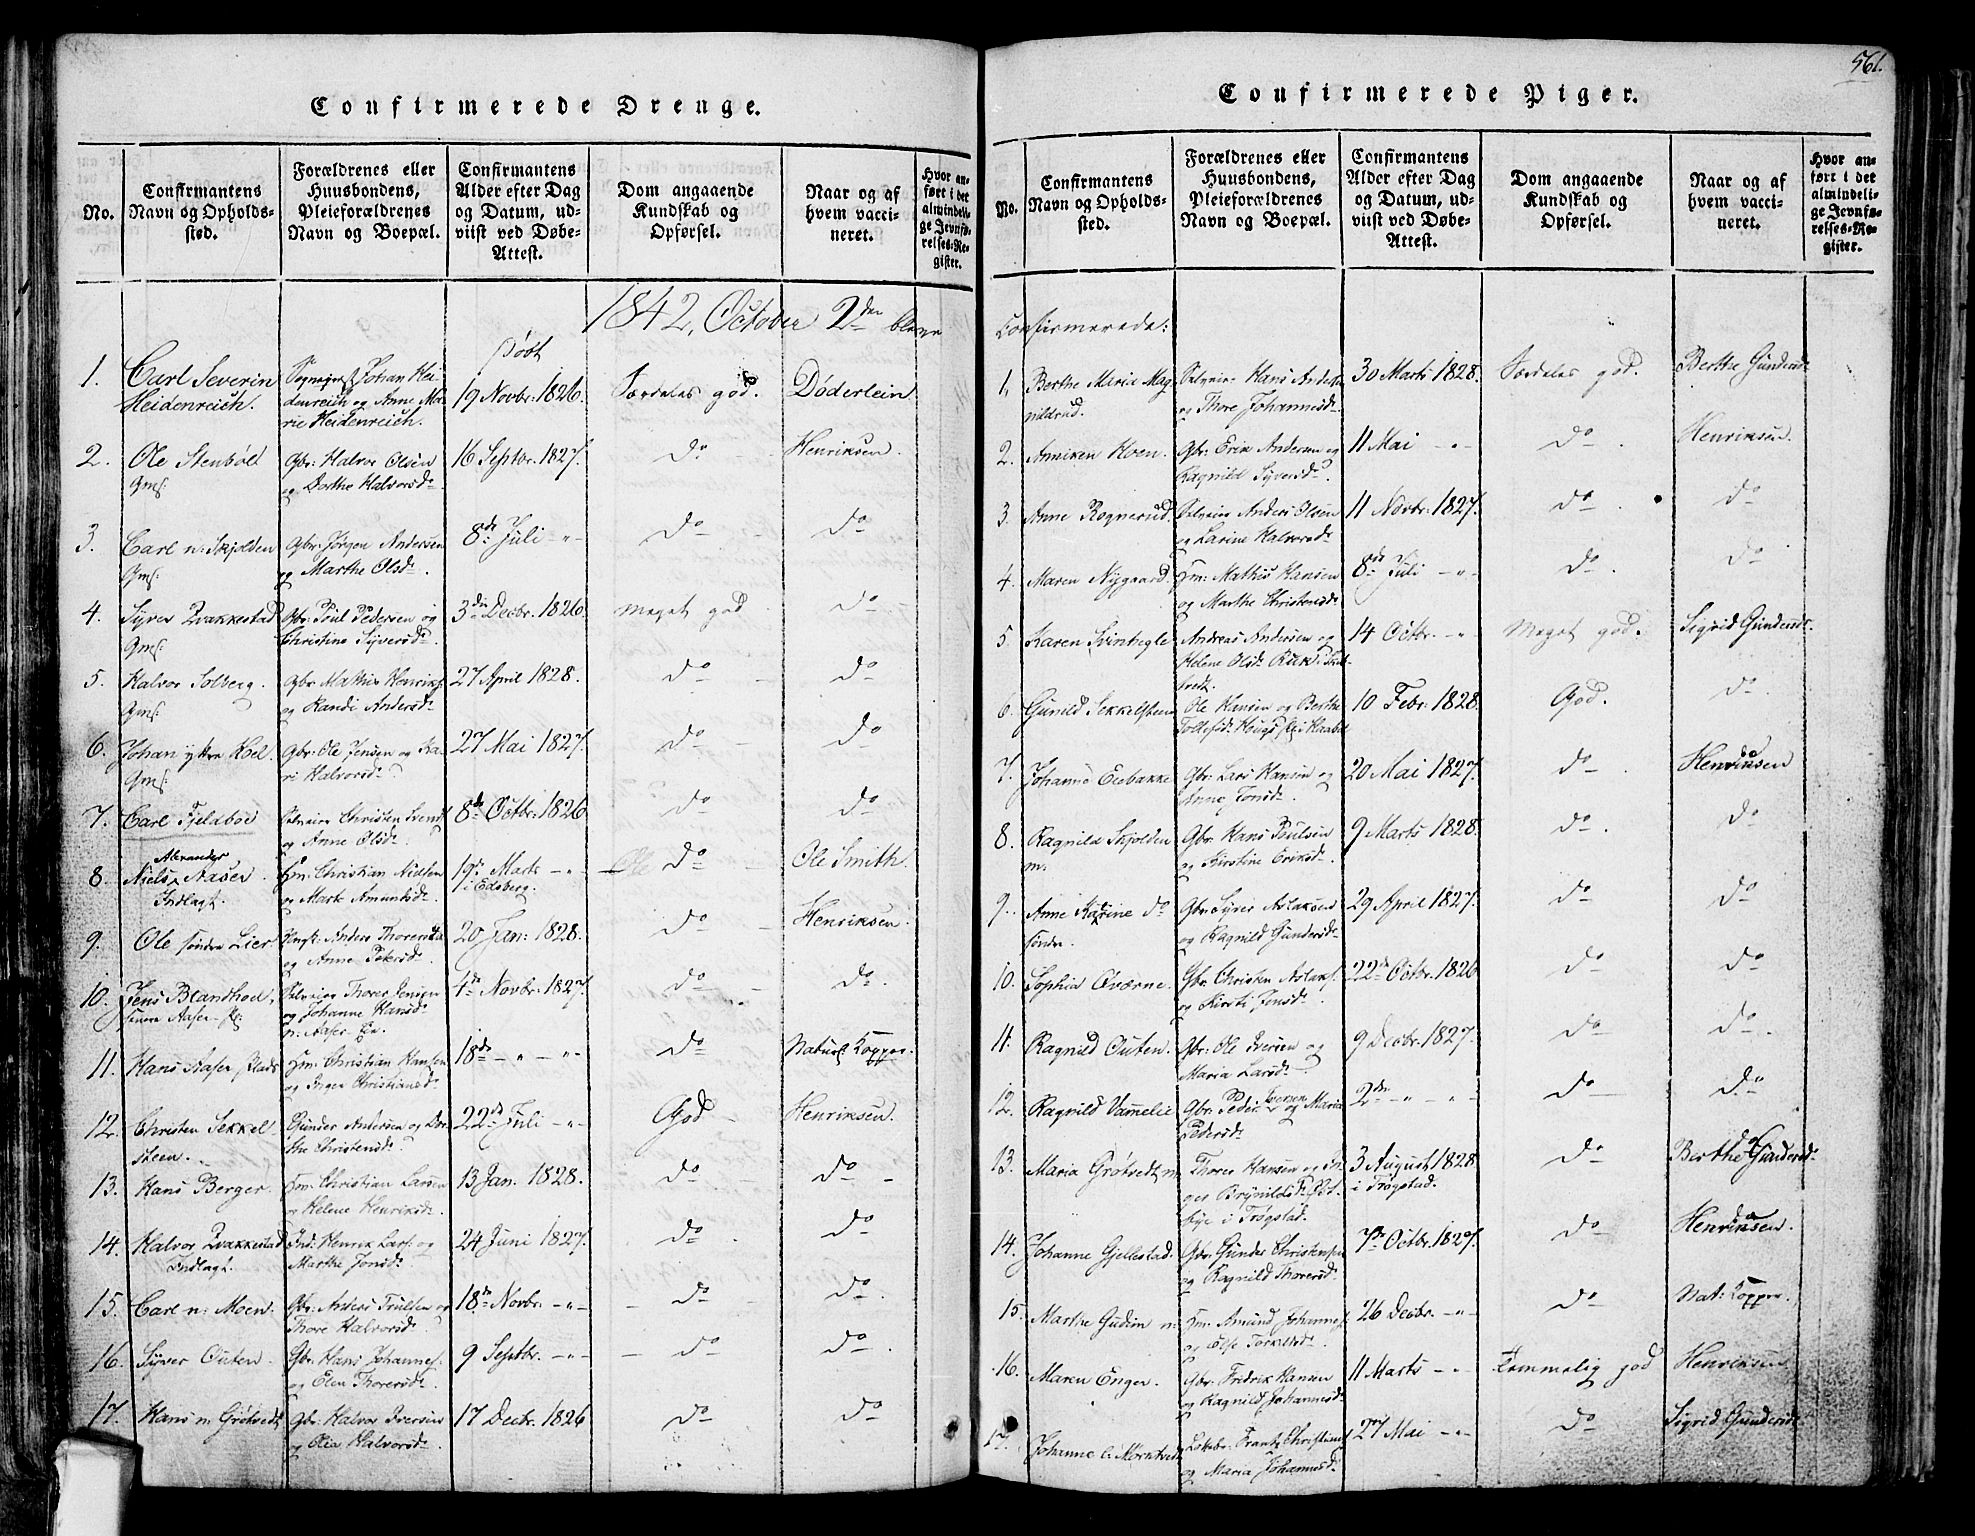 561.
Confirmerede Drenge.
No.
Confirmantens Navn og Opholds-
sted.
Forældrenes eller
Huusbondens,
Pleieforældrenes
Navn og Boepæl.
Confirmantens
Alder efter Dag
og Datum, ud-
viist ved Døbe-
Attest.
Dom angaaende
Kundskab og
Opførsel.
Naar og af
hvem vacci-
neret.
Hvor an-
ført i det
almindeli-
ge Jevnfø-
relses-Re-
gister.
1842, October 2den bleve
Døbt
1. Carl Severin Heidenreich. Johan Hei-
denreich og Anne Ma-
rie Heidenreich. 19 Novbr: 1826. Særdeles god. Døderlein.
2. Ole Stenbøl Gms: Gbr: Halvor Olsen
og Dorthe Halvorsd. 16 Septbr. 1827. do Henriksen.
3. Carl n: Skjolden Gms: Gbr: Jørgen Andersen
og Marthe Olsd. 8de Juli -"- do do
4. Syver Qvakkestad Gms: Gbr: Poul Pedersen og
Christine Syversd. 3die Decbr. 1826. Meget god do
5. Halvor Solberg. Gms: Gbr: Mathis Henriks:
og Randi Andersd. 27 April 1828. do do
6. Johan ytre Hoel. Gms: Gbr: Ole Jensen og Ka-
ri Halvorsd. 27 Mai 1827. do do
7. Carl Fjeldboe Christen
og Anne Olsd. 8de Octbr. 1826. do do
8. Niels Alexander Aaser. Indlagt. Hm: Christian Nielsen
og Marte Amundsd. 19de Marts -"-
i Edsberg. do Ole Smith.
9. Ole søndre Lier Anders
og Anne 20 Jan: 1828. do Henriksen.
10. Jens Blandhoel, Thorer Jensen
og Johanne Hansd.
n: Aaser Eie. 4de Novbr: 1827. do do
11. Hans Aaser Hm: Christian Hansen
og Inger Christiansd. 18de -"- -"- do Naturl. Kopper.
12. Christen Sekkel-
steen. Gunder Andersen og Dor-
the Christensd. 22de Juli -"- God Henriksen.
13. Hans Berger. Hm: Christian Larsen
og Helene Henriksd. 13 Jan. 1828. do do
14. Halvor Qvakkestad
Indlagt. Ind: Henrik Lars: og
Marthe Jonsd. 24 Juni 1827. do do
15. Carl n: Moen. Gbr: Anders Trulsen og
Thore Halvorsd. 18de Novbr. -"- do do
16. Syver Outen Gbr: Hans Johannes:
og Elen Thorersd. 9 Septbr. -"- do do
17. Hans n: Grøtvedt Gbr: Halvor Iversen
og Olia Halvorsd. 17 Decbr. 1826 do do
Confirmerede Piger.
No.
Confirmantens
Navn og Opholds-
sted.
Forældrenes eller
Huusbondens,
Pleieforældrenes
Navn og Boepæl.
Confirmantens
Alder efter Dag
og Datum, ud-
viist ved Døbe-
Attest.
Dom angaaende
Kundskab og
Opførsel.
Naar og af
hvem vacci-
neret.
Hvor an-
ført i det
almindeli-
ge Jevnfø-
relses-Re-
gister.
Confirmerede:
1. Berthe Marie Mag-
nildrud. Hans Anders:
og Thore Johannesd. 30 Marts 1828. Særdeles god. Berthe Gundersd.
2. Anniken Hoen. Gbr: Erik Andersen og
Ragnild Syversd. 11 Mai -"- do Henriksen.
3. Anne Rognerud. Anders Olsen
og Larine Halvorsd. 11 Novbr. 1827. do do
4. Maren Nygaard. Hm: Mathis Hansen
og Marthe Christensd. 8de Juli -"- do do
5. Karen Svinhegle Andreas Andersen og
Helene Olsd. 14 Octbr. -"- Meget god. Sigrid Gundersd.
6. Gunild Sekkelsteen Ole Hansen og Berthe
Tollefsd. 10 Febr: 1828. God. do
7. Johanne Eebakke Gbr: Lars Hansen og
Anne Jonsd. 20 Mai 1827. do Henriksen
8. Ragnild Skjolden
m. Gbr: Hans Poulsen
og Kirstine Eriksd. 9 Marts 1828. do do
9. Anne Karine do
søndre. Gbr: Syver Aslaksen
og Ragnild Gundersd. 29 April 1827. do do
10. Sophia Qværne. Gbr: Christen Aslaks:
og Kirsti Jensd. 22de Octbr. 1826 do do
11. Ragnild Outen. Gbr: Ole Iversen og
Maria Larsd. 9 Decbr. 1827. do do
12. Ragnild Vammelie Gbr: Peder Iversen og Maria
Pedersd. 2den -"- -"- do do
13. Maria Grøtvedt n: Thorer Hansen og In-
ger Brynildsd.
i Trøgstad. 3 August 1828
i Trøgstad. do Berthe Gundersd.
14. Johanne Gjellestad. Gbr: Gunder Christensen
og Ragnild Thorersd. 7de Octbr. 1827. do Henriksen.
15. Marthe Gudim n: Hm: Amund Johannes:
og Else Torkilsd. 26 Decbr. -"- do Nat: Kopper.
16. Maren Enger. Gbr: Fredrik Hansen
og Ragnild Johannesd. 11 Marts -"- Temmelig god Henriksen
17. Johanne l: Mørkvedt Frantz Christians:
og Maria Johannesd. 27 Mai -"- do Sigrid Gundersd.